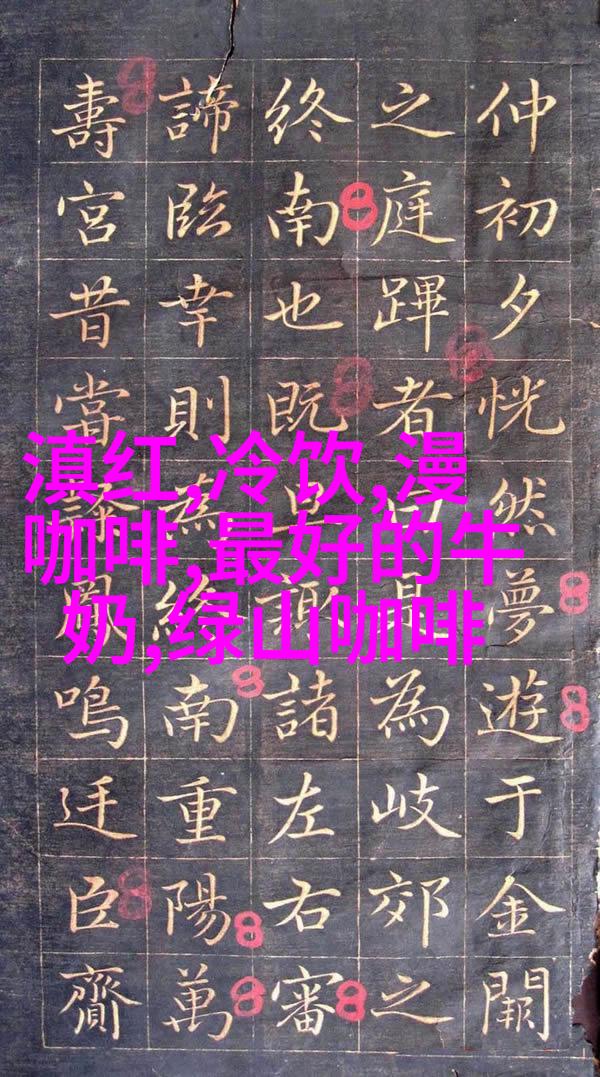 仲初夕恍然夢遊于金闕
之庭蹕者為岐郊之
終南也既諸左右審
諦臨幸則南重陽萬
壽宮昔當鳴迋臣齎
滇红,冷饮,漫
咖啡,最好的牛
奶,绿山咖啡